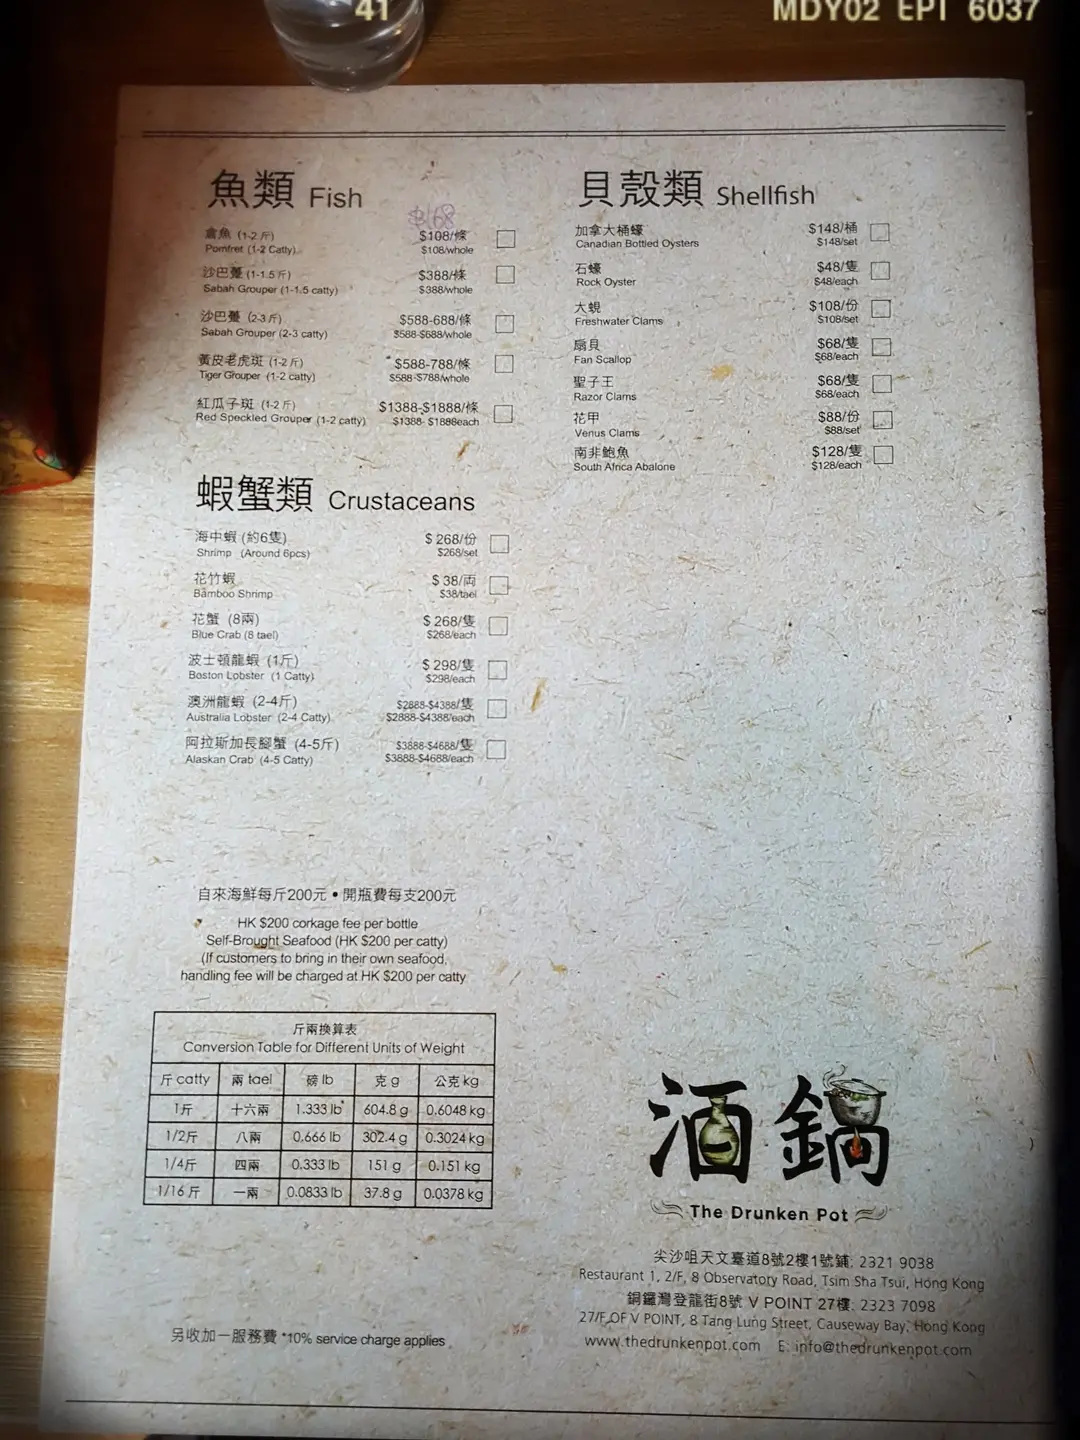 41
MDY02 EPI 6037
魚類 Fish
$168
鱠魚 (1-2 斤) $108/條
Pomfret (1-2 Catty) $108/whole
沙巴躉 (1-1.5 斤) $388/條
Sabah Grouper (1-1.5 catty) $388/whole
沙巴躉 (2-3 斤) $588-688/條
Sabah Grouper (2-3 catty) $588-$688/whole
黃皮老虎斑 (1-2 斤) $588-788/條
Tiger Grouper (1-2 catty) $588-$788/whole
紅瓜子斑 (1-2 斤) $1388-$1888/條
Red Speckled Grouper (1-2 catty) $1388- $1888each
蝦蟹類 Crustaceans
海中蝦 (約6隻) $ 268/份
Shrimp (Around 6pcs) $268/set
花竹蝦 $ 38/両
Bamboo Shrimp $38/tael
花蟹 (8兩) $ 268/隻
Blue Crab (8 tael) $268/each
波士頓龍蝦 (1斤) $ 298/隻
Boston Lobster (1 Catty) $298/each
澳洲龍蝦 (2-4斤) $2888-$4388/隻
Australia Lobster (2-4 Catty) $2888-$4388/each
阿拉斯加長腳蟹 (4-5斤) $3888-$4688/隻
Alaskan Crab (4-5 Catty) $3888-$4688/each
貝殼類 Shellfish
加拿大桶蠔 $148/桶
Canadian Bottled Oysters $148/set
石蠔 $48/隻
Rock Oyster $48/each
大蜆 $108/份
Freshwater Clams $108/set
扇貝 $68/隻
Fan Scallop $68/each
聖子王 $68/隻
Razor Clams $68/each
花甲 $88/份
Venus Clams $88/set
南非鮑魚 $128/隻
South Africa Abalone $128/each
自來海鮮每斤200元 • 開瓶費每支200元
HK $200 corkage fee per bottle
Self-Brought Seafood (HK $200 per catty)
(If customers to bring in their own seafood,
handling fee will be charged at HK $200 per catty
斤兩換算表
Conversion Table for Different Units of Weight
斤 catty 兩 tael 磅 lb 克 g 公克 kg
1斤 十六兩 1.333 lb 604.8 g 0.6048 kg
1/2斤 八兩 0.666 lb 302.4 g 0.3024 kg
1/4斤 四兩 0.333 lb 151 g 0.151 kg
1/16 斤 一兩 0.0833 lb 37.8 g 0.0378 kg
另收加一服務費 *10% service charge applies
酒鍋
The Drunken Pot
尖沙咀天文臺道8號2樓1號鋪: 2321 9038
Restaurant 1, 2/F, 8 Observatory Road, Tsim Sha Tsui, Hong Kong
銅鑼灣登龍街8號 V POINT 27樓: 2323 7098
27/F OF V POINT, 8 Tang Lung Street, Causeway Bay, Hong Kong
www.thedrunkenpot.com E: info@thedrunkenpot.com